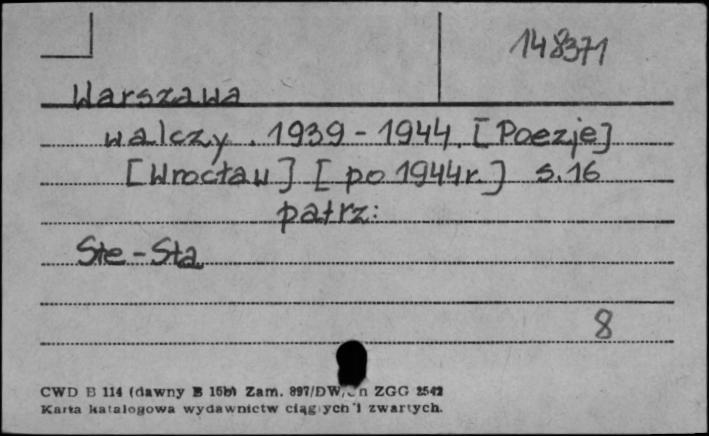 148371
Warszawa
walczy. 1939-1944. [Poezje]
[Wrocław] [po 1944r.] s.16
patrz:
Ste-Sta
8
CWD B 114 (dawny B 15b) Zam. 897/DW/ n ZGG 2542
Karta katalogowa wydawnictw ciągłych i zwartych.